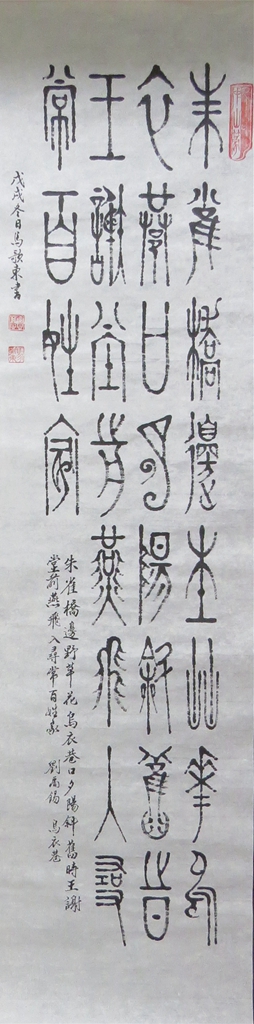 朱雀橋邊野艸華烏
衣巷口夕陽斜舊時
王謝堂前燕飛入尋
常百姓家
朱雀橋邊野草花烏衣巷口夕陽斜舊時王謝
堂前燕飛入尋常百姓家 劉禹錫 烏衣巷
戊戌冬日馬歌東書